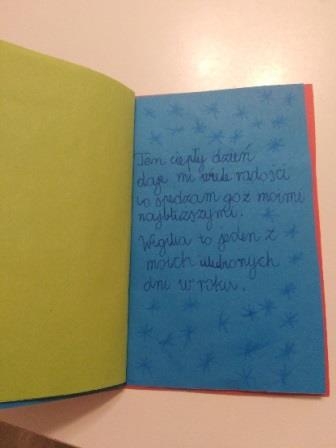 Ten ciepły dzień
daje mi wiele radości
bo spędzam go z moimi
najbliższymi.
Wigilia to jeden z
moich ulubionych
dni w roku.